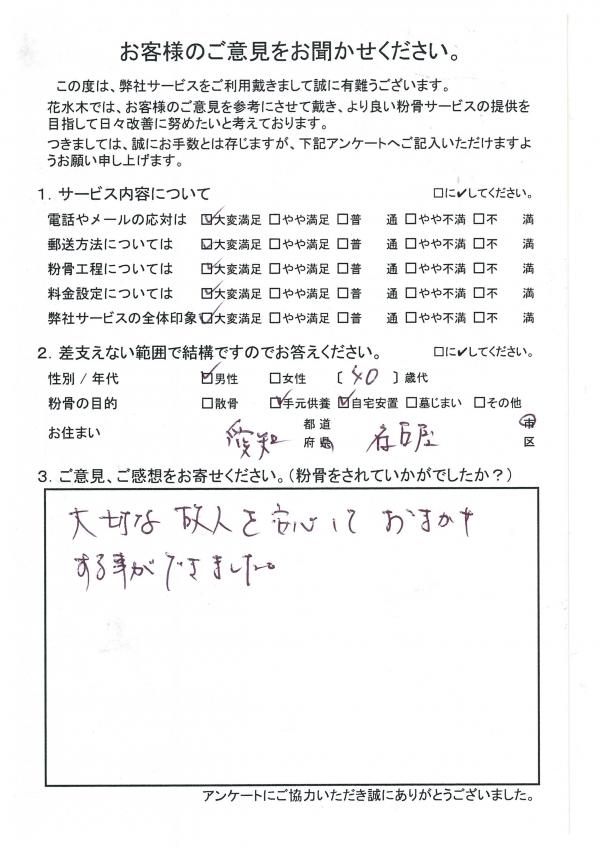 お客様のご意見をお聞かせください。
この度は、弊社サービスをご利用戴きまして誠に有難うございます。
花水木では、お客様のご意見を参考にさせて戴き、より良い粉骨サービスの提供を
目指して日々改善に努めたいと考えております。
つきましては、誠にお手数とは存じますが、下記アンケートへご記入いただけますよ
うお願い申し上げます。
1．サービス内容について □に✔してください。
電話やメールの応対は ☑大変満足 □やや満足 □普 通 □やや不満 □不 満
郵送方法については ☑大変満足 □やや満足 □普 通 □やや不満 □不 満
粉骨工程については ☑大変満足 □やや満足 □普 通 □やや不満 □不 満
料金設定については ☑大変満足 □やや満足 □普 通 □やや不満 □不 満
弊社サービスの全体印象 ☑大変満足 □やや満足 □普 通 □やや不満 □不 満
2．差支えない範囲で結構ですのでお答えください。 □に✔してください。
性別 / 年代 ☑男性 □女性 〔 40 〕歳代
粉骨の目的 □散骨 ☑手元供養 ☑自宅安置 □墓じまい □その他
お住まい 愛知 都道府県 名古屋 市区
3．ご意見、ご感想をお寄せください。（粉骨をされていかがでしたか？）
大切な故人を安心しておまかせ
する事ができました。
アンケートにご協力いただき誠にありがとうございました。